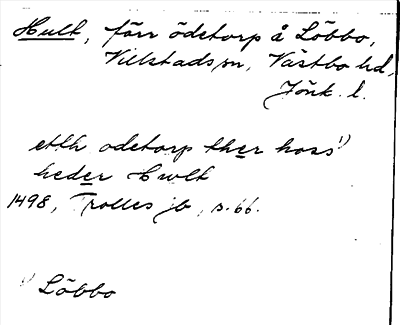 Hult, förr ödetorp å Löbbo,
Villstads sn, Västbo hd,
Jönk. l.
etth odetorp ther hoss 1)
heder Hwlt
1498, Trolles jb, s. 66.
1) Löbbo